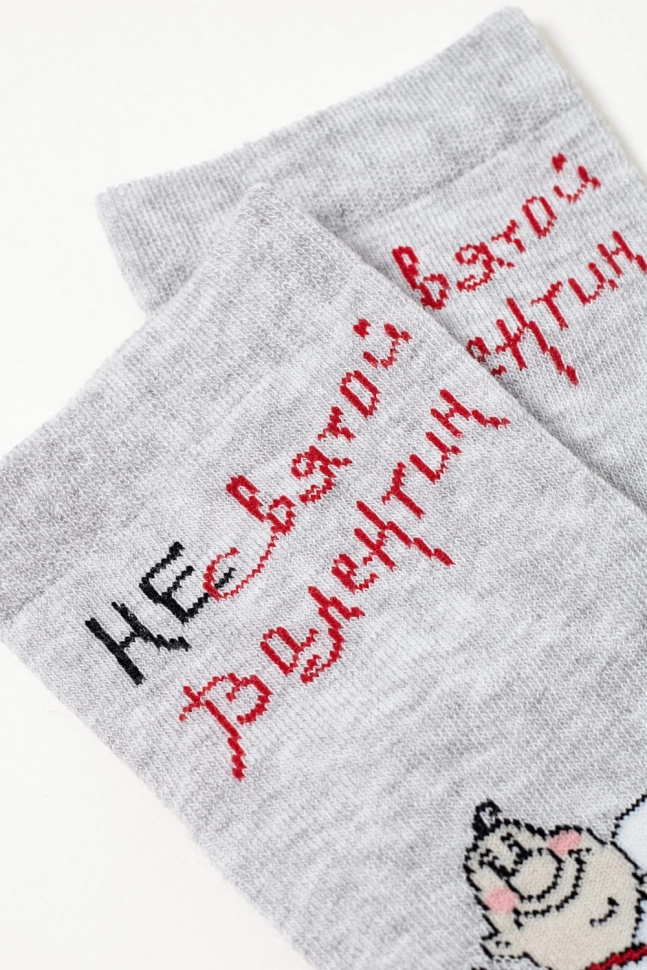 НЕ Святой
Валентин
вятой
ентин